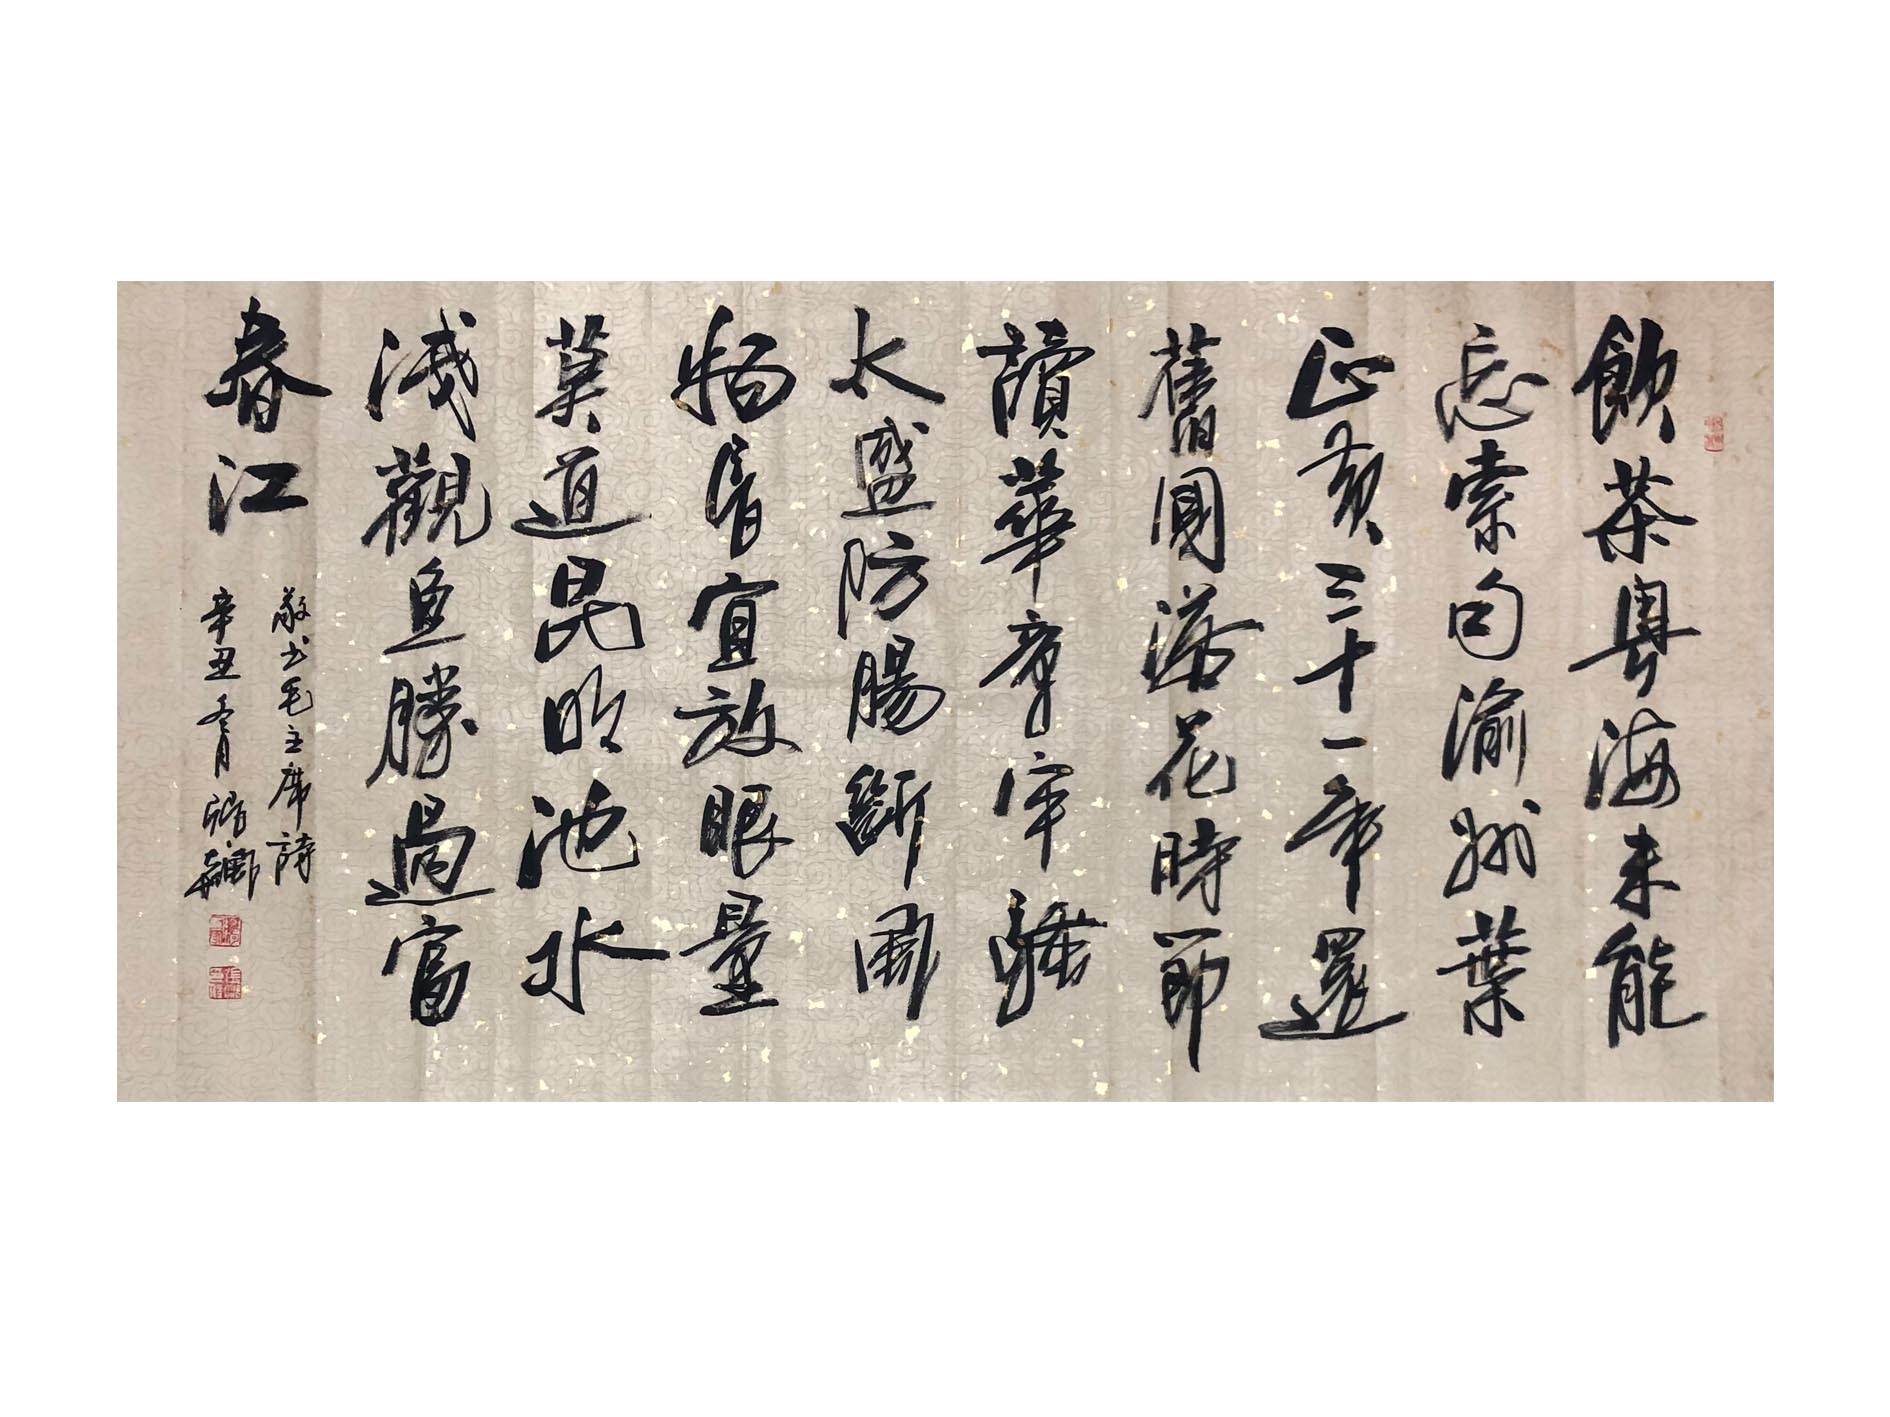 飲茶粵海未能
忘索句渝州葉
正黃三十一年還
舊國落花時節
讀華章牢騷
太盛防腸斷風
物長宜放眼量
莫道昆明池水
淺觀魚勝過富
春江
敬书毛主席詩
辛丑冬月